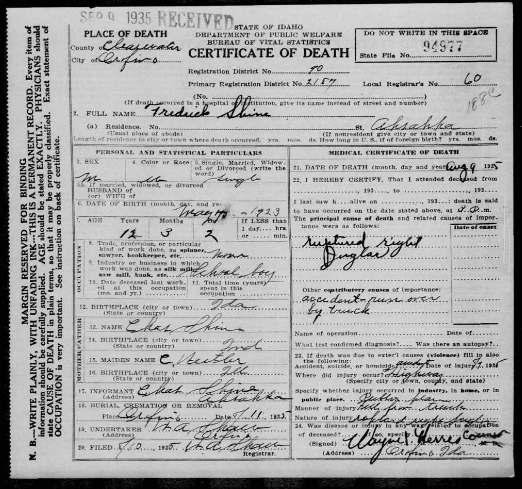 SEP 9 1935 RECEIVED
STATE OF IDAHO
DEPARTMENT OF PUBLIC WELFARE
BUREAU OF VITAL STATISTICS
CERTIFICATE OF DEATH
DO NOT WRITE IN THIS SPACE
State File No. 94977
PLACE OF DEATH
County of Clearwater
City of Orofino
Registration District No. 90
Primary Registration District No. 2157
Local Registrar's No. 60
(No.
(If death occurred in a hospital or institution, give its name instead of street and number)
2. FULL NAME Fredrick Shine
(a) Residence. No. St. Ahsahka
(Usual place of abode) (If nonresident give city or town and state)
Length of residence in city or town where death occurred yrs. mos. ds. How long in U. S., if of foreign birth? yrs. mos. ds.
PERSONAL AND STATISTICAL PARTICULARS
3. SEX M
4. Color or Race W
5. Single, Married, Widowed, or Divorced (write the word) Single
5a. If married, widowed, or divorced
HUSBAND of
(or) WIFE of
6. DATE OF BIRTH (month, day and year) 1923
7. AGE Years Months Days If LESS than
12 3 2
1 day, hrs.
or min.
OCCUPATION
8. Trade, profession, or particular kind of work done, as spinner, sawyer, bookkeeper, etc. none
9. Industry or business in which work was done, as silk mill, saw mill, bank, etc. School boy
10. Date deceased last worked at this occupation
11. Total time (years) spent in this occupation
12. BIRTHPLACE (city or town) Ida
(State or country)
13. NAME Chas Shine
14. BIRTHPLACE (city or town) Ind
(State or country)
15. MAIDEN NAME C
16. BIRTHPLACE (city or town)
(State or country)
17. INFORMANT Chas Shine
(Address) Ahsahka
18. BURIAL, CREMATION OR REMOVAL
Place Orofino Date 8-11 1935
19. UNDERTAKER
(Address) Orofino
20. FILED 1935
Registrar.
MEDICAL CERTIFICATE OF DEATH
21. DATE OF DEATH (month, day and year) Aug 9 1935
22. I HEREBY CERTIFY, That I attended deceased from
193 to 193
I last saw h alive on 193 death is said
to have occurred on the date stated above, at P.M.
The principal cause of death and related causes of importance were as follows:
Date of onset
ruptured right
Juglar
Other contributory causes of importance:
accident - run over
by truck
Name of operation Date of
What test confirmed diagnosis? Was there an autopsy?
23. If death was due to external causes (violence) fill in also the following:
Accident, suicide, or homicide?
Where did injury occur? Highway
(Specify city or town, county, and state)
Specify whether injury occurred in industry, in home, or in public place.
Manner of injury fell from truck
Nature of injury
24. Was disease or injury in any way related to occupation of deceased?
(Signed) Coroner
(Address) Orofino Ida
MARGIN RESERVED FOR BINDING
N. B.—WRITE PLAINLY, WITH UNFADING INK—THIS IS A PERMANENT RECORD. Every item of
information should be carefully supplied. AGE should be stated EXACTLY. PHYSICIANS should
state CAUSE OF DEATH in plain terms, so that it may be properly classified. Exact statement of
OCCUPATION is very important. See instruction on back of certificate.